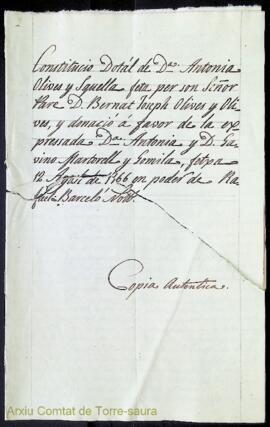 Constitucio Dotál de Dª. Antonia
Olives y Squella feta per son Señor
Pare D. Bernat Joseph Olives y Oli-
ves, y donació á favor de la ex-
presada Dª. Antonia y D. Ga-
vino Martorell y Gomila, fetxa
12 Agost de 1766 en poder de Ra-
fael Barceló Nott.
Copia Autentica.
Arxiu Comtat de Torre-saura